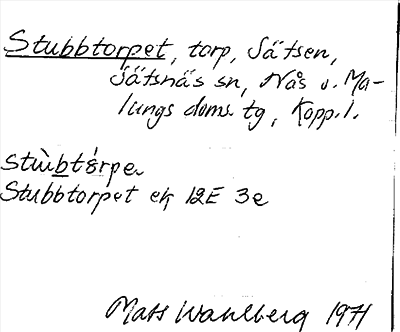 Stubbtorpet, torp, Sätsen,
Sätsnäs sn, Nås o. Ma-
lungs doms. tg, Kopp. l.
stùbtǻrpe
Stubbtorpet ek 12E 3e
Mats Wahlberg 1971